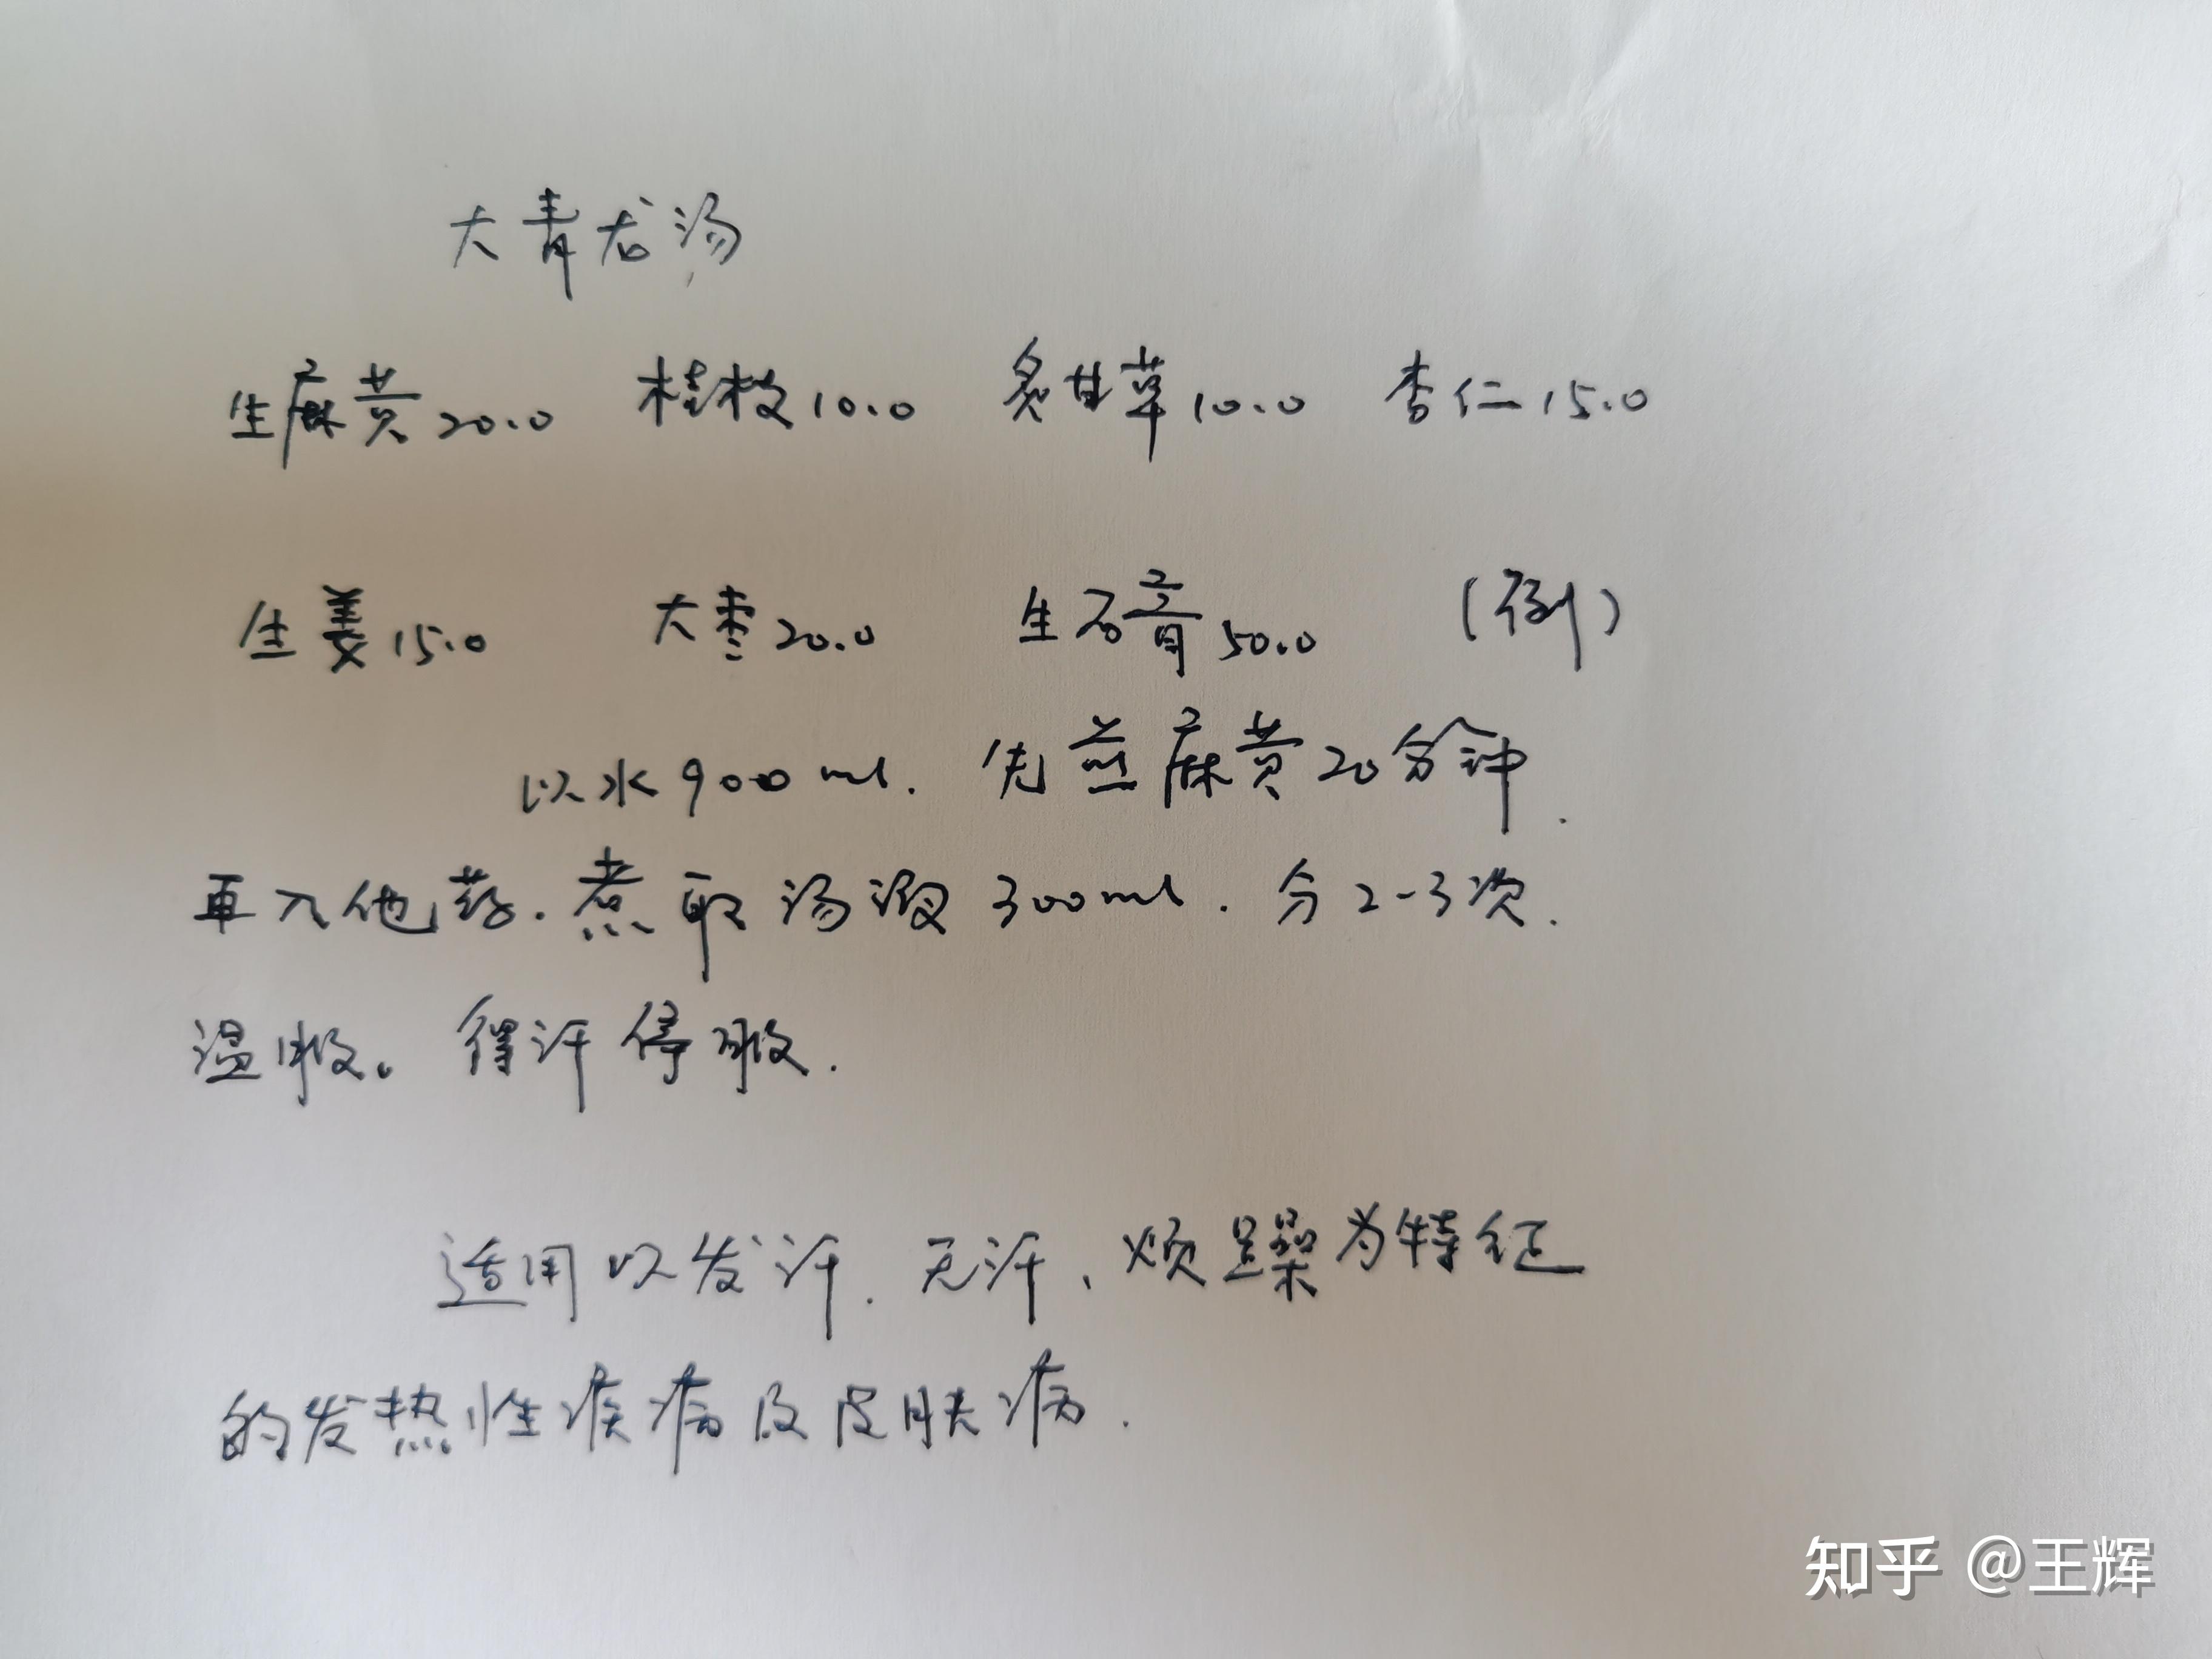 大青龙汤
生麻黄20.0 桂枝10.0 炙甘草10.0 杏仁15.0
生姜15.0 大枣20.0 生石膏50.0 (例)
以水900ml. 先煎麻黄20分钟.
再入他药.煮取汤液300ml.分2-3次.
温服。得汗停服.
适用以发汗.无汗、烦躁为特征
的发热性疾病及皮肤病.
知乎 @王辉